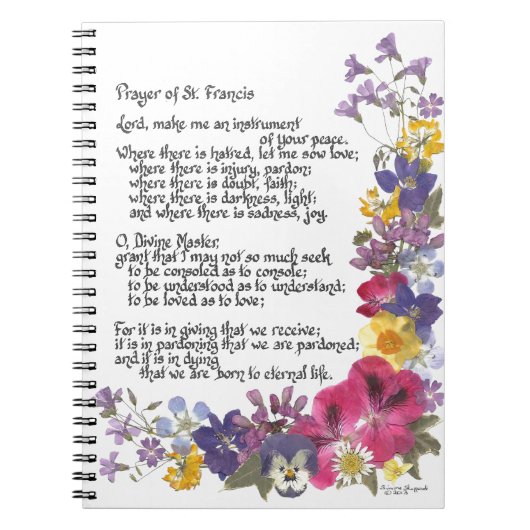 Prayer of St. Francis
Lord, make me an instrument
of your peace.
Where there is hatred, let me sow love;
where there is injury, pardon;
where there is doubt, faith;
where there is darkness, light;
and where there is sadness, joy.
O, Divine Master,
grant that I may not so much seek
to be consoled as to console;
to be understood as to understand;
to be loved as to love;
For it is in giving that we receive;
it is in pardoning that we are pardoned;
and it is in dying
that we are born to eternal life.